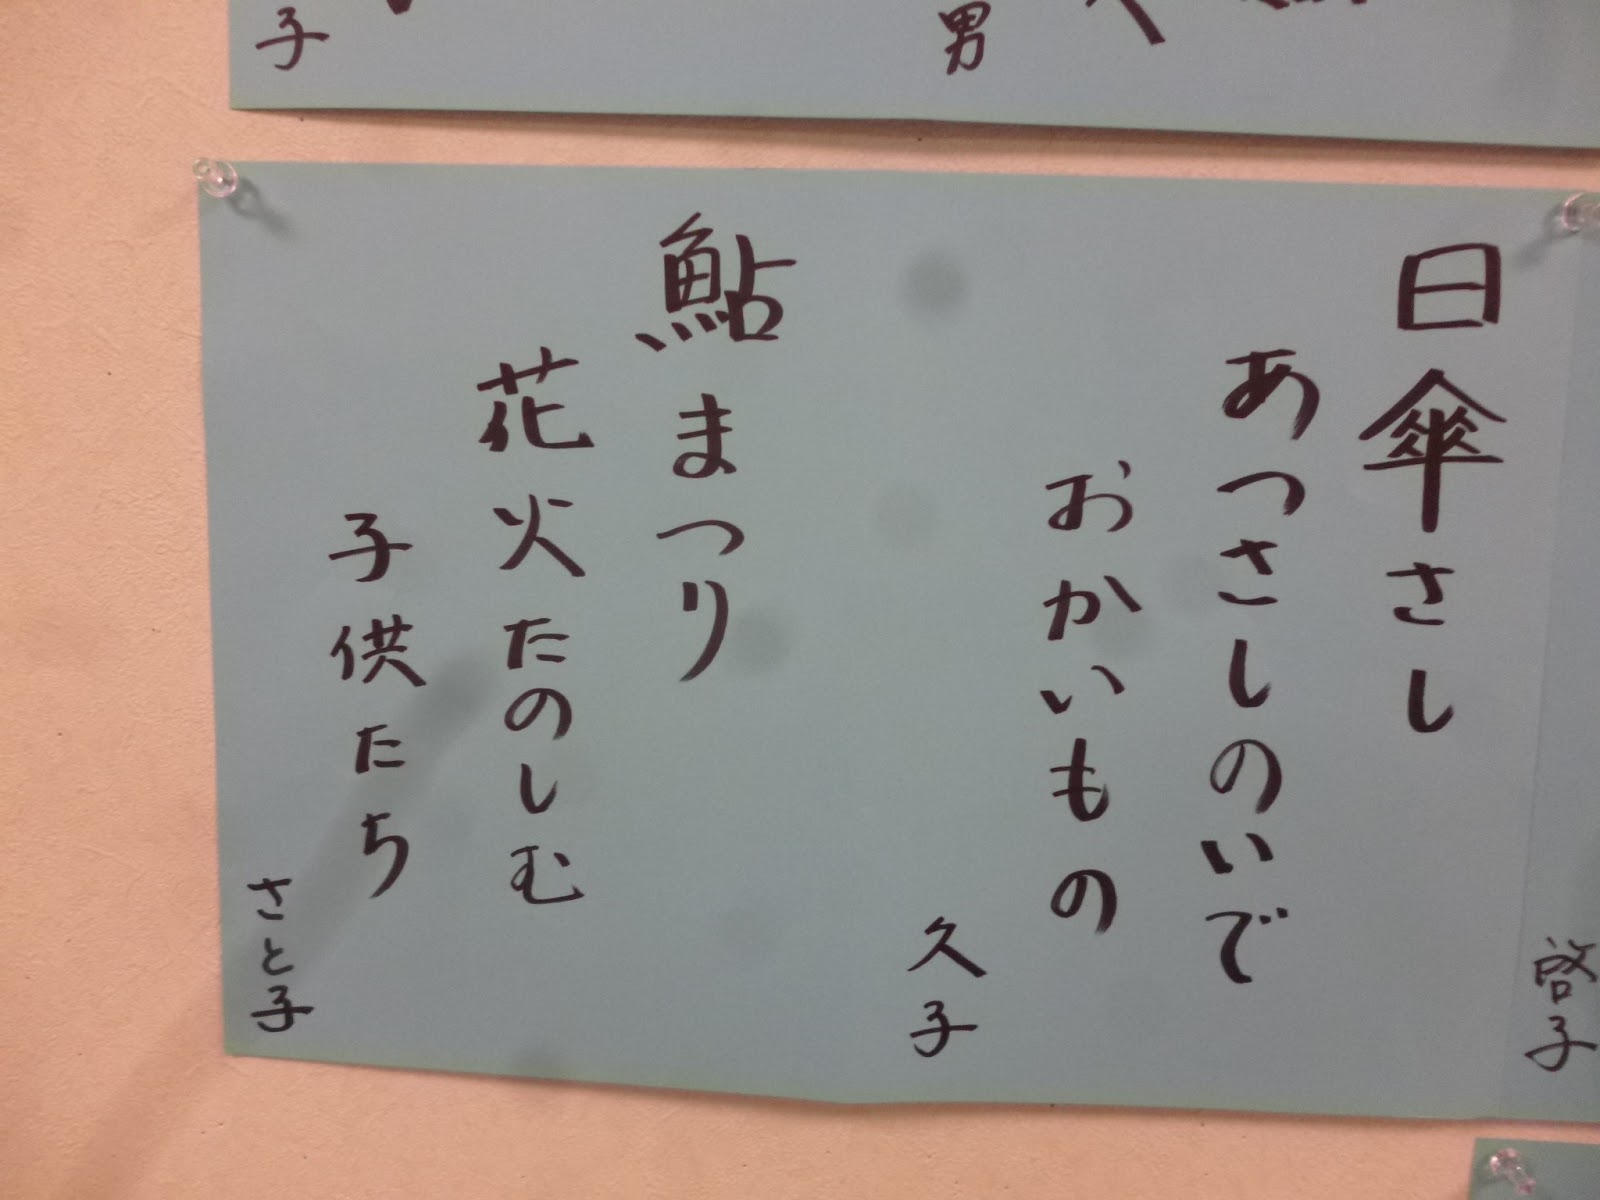 男
子
啓子
日傘さし
あつさしのいで
おかいもの
久子
鮎まつり
花火たのしむ
子供たち
さと子